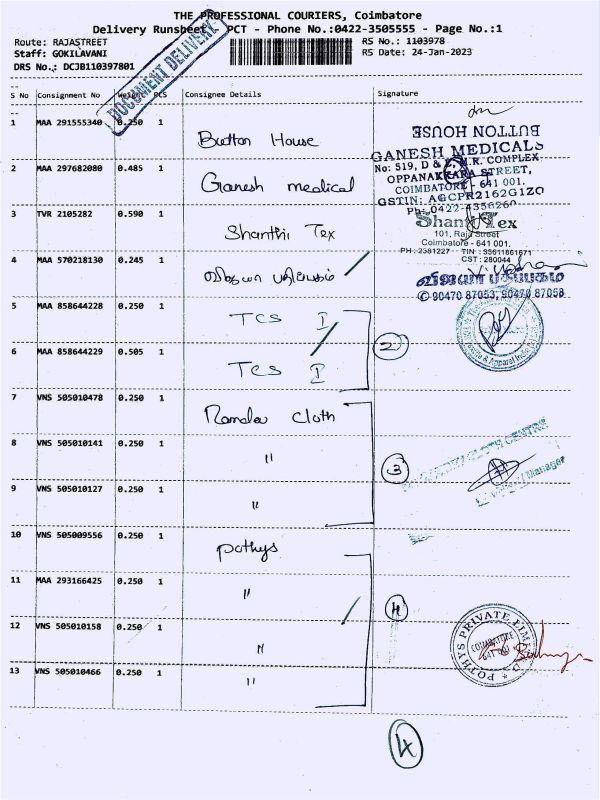 THE PROFESSIONAL COURIERS, Coimbatore
Delivery Runsheet PCT - Phone No.:0422-3505555 - Page No.:1
Route: RAJASTREET
RS No.: 1103978
Staff: GOKILAVANI
RS Date: 24-Jan-2023
DRS No.: DCJB110397801
DOCUMENT DELIVERY
S No Consignment No Weight PCS Consignee Details Signature
1 MAA 291555340 0.250 1 Button House
BUTTON HOUSE
2 MAA 297682080 0.485 1 Ganesh medical
GANESH MEDICALS
No: 519, D & E, M.R. COMPLEX,
OPPANAKKARA STREET,
COIMBATORE - 641 001.
GSTIN: AGCPR2162G1ZO
Ph: 0422-4356260
3 TVR 2105282 0.590 1 Shanthi Tex
Shanti Tex
101, Raja Street
Coimbatore - 641 001.
PH : 2381227 TIN : 33611861671
CST : 280044
4 MAA 570218130 0.245 1 விஜயா பதிப்பகம்
விஜயா பதிப்பகம்
✆ 90470 87053, 90470 87058
5 MAA 858644228 0.250 1 TCS I
6 MAA 858644229 0.505 1 TCS I
2
7 VNS 505010478 0.250 1 Ramdev Cloth
8 VNS 505010141 0.250 1 "
3
CLOTH CENTRE
Manager
9 VNS 505010127 0.250 1 "
10 VNS 505009556 0.250 1 pothys
11 MAA 293166425 0.250 1 "
4
12 VNS 505010158 0.250 1 "
POTHYS PRIVATE LIMITED
COIMBATORE
13 VNS 505010466 0.250 1 "
4